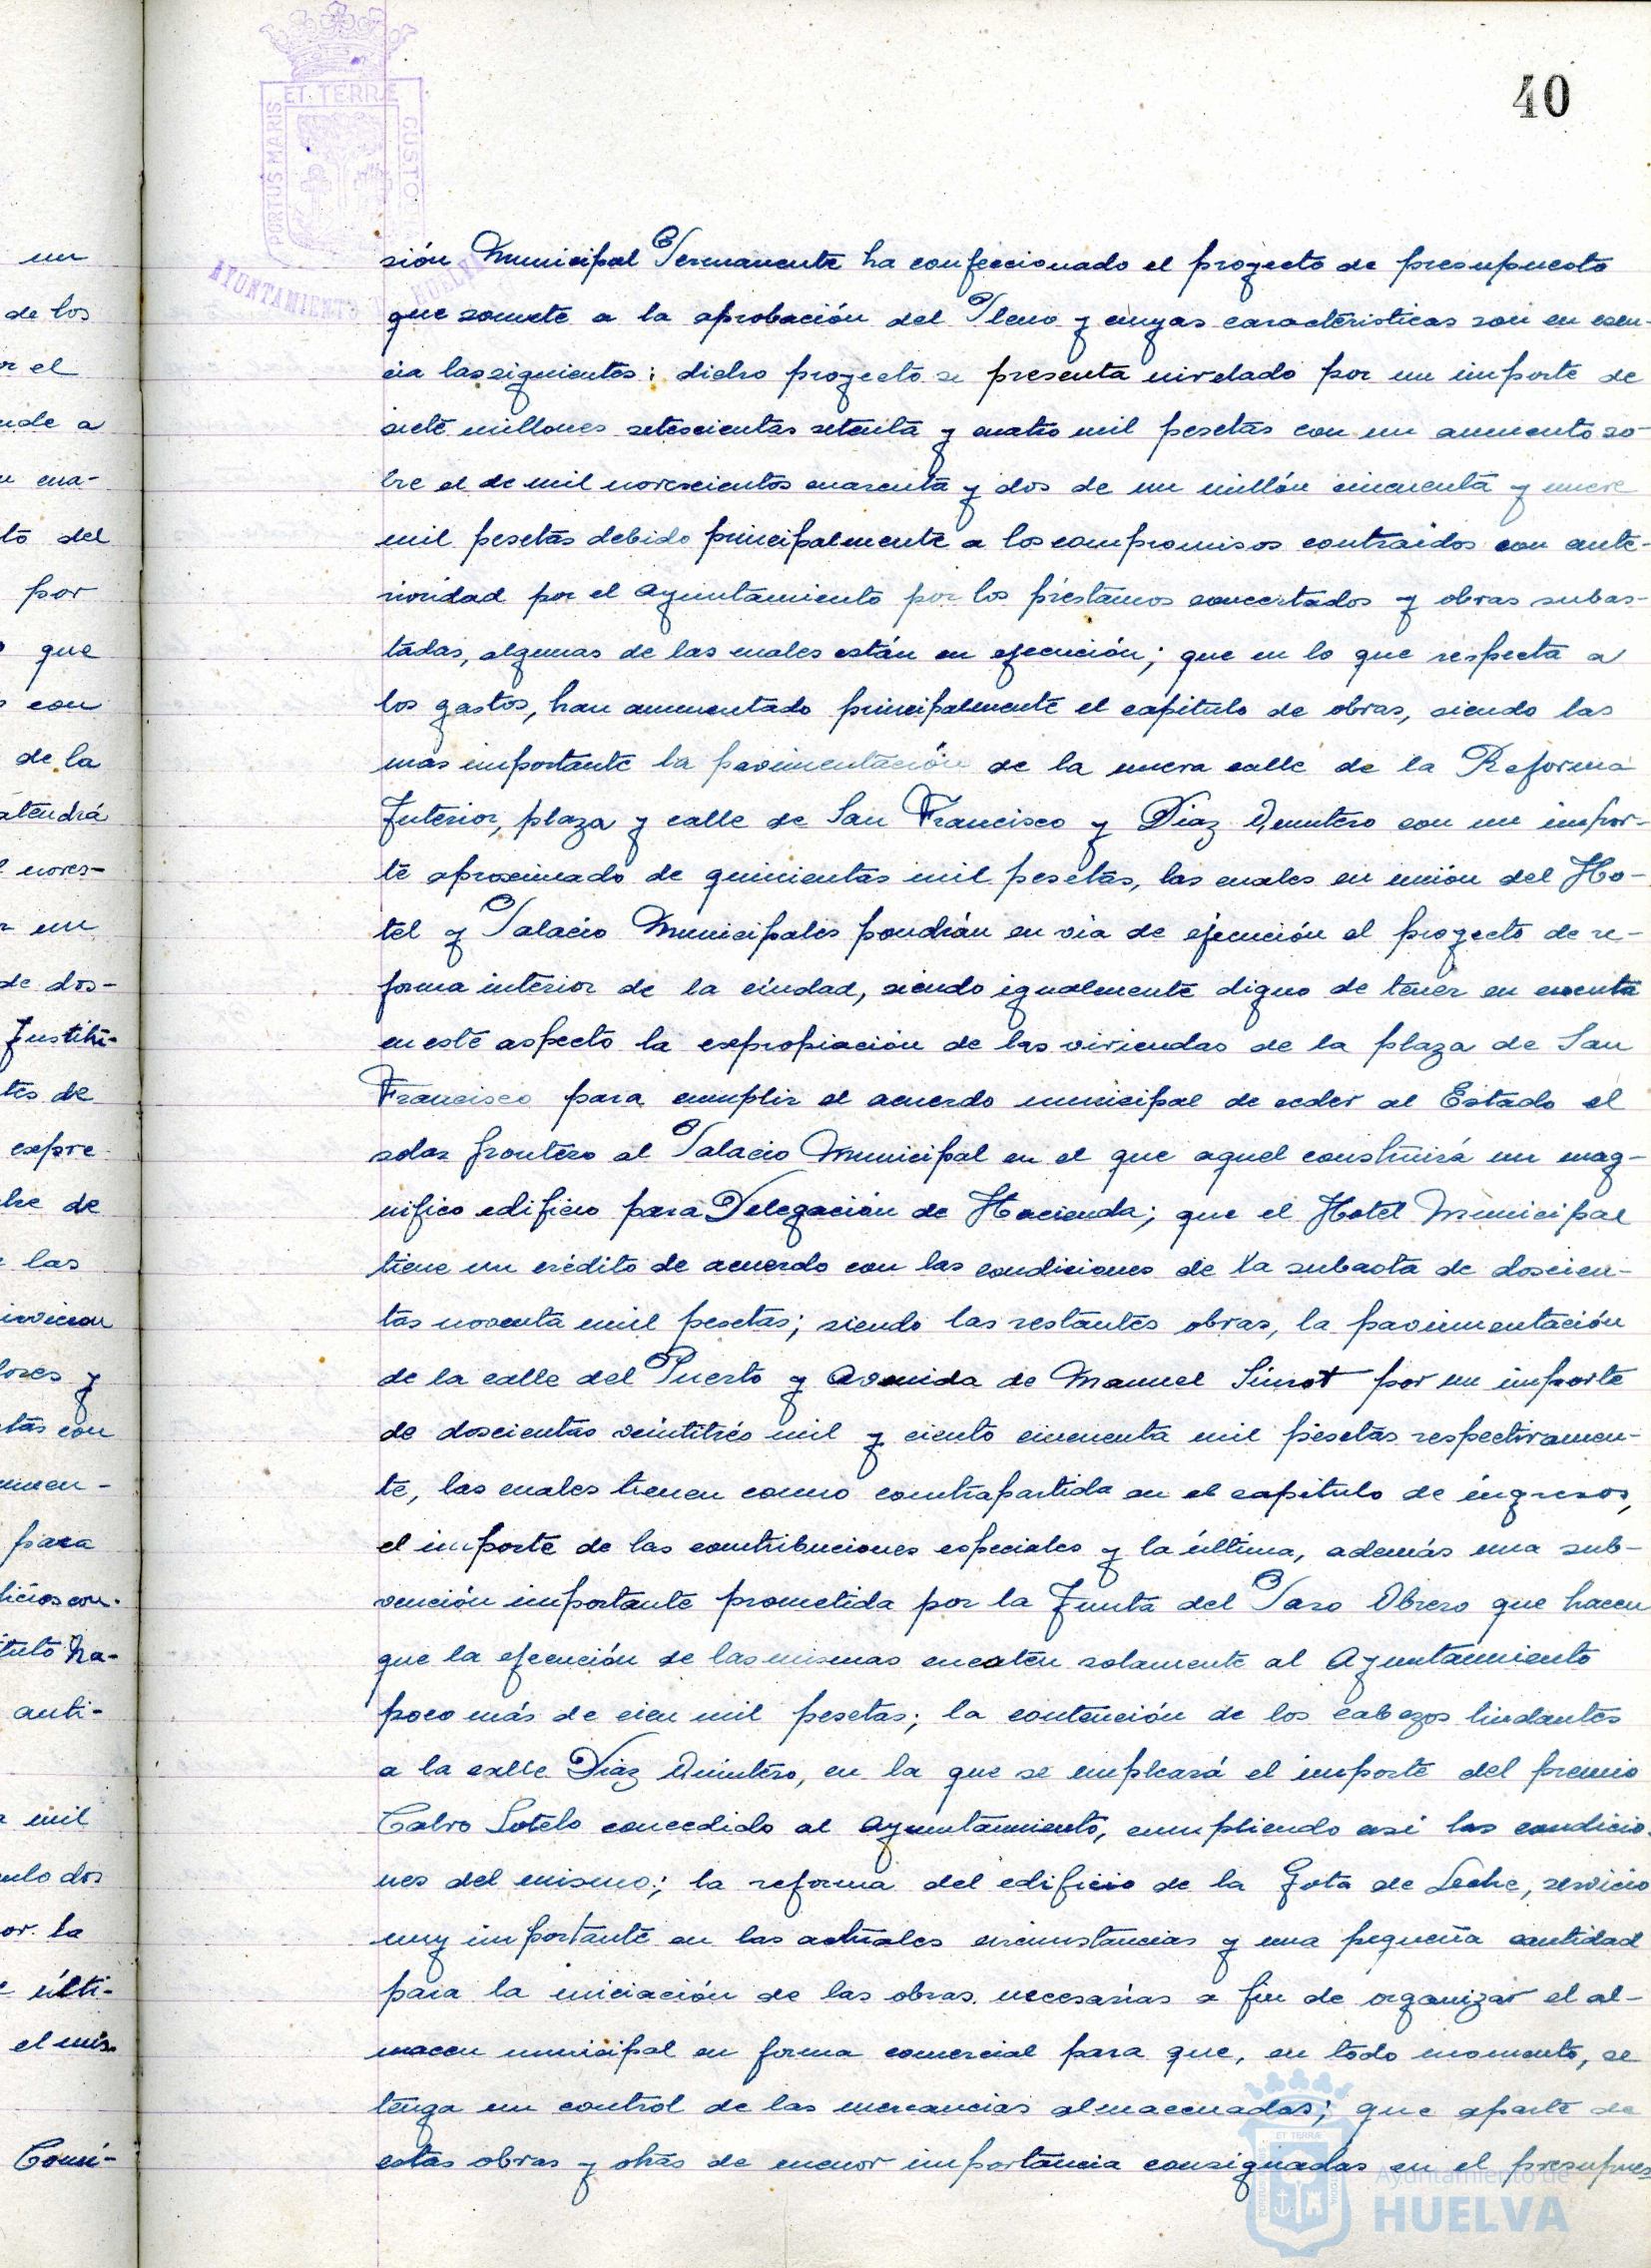 40
PORTUS MARIS ET TERRE CUSTODIA
AYUNTAMIENTO DE HUELVA
un
de los
or el
nde a
n cua-
to del
por
o que
s con
de la
atendrá
l noves-
r un
de dos-
Justiti-
tes de
expre-
bre de
e las
lores y
tas con
umen-
para
ticios con-
tuto ha-
anti-
a mil
ulo dos
or la
e últi-
el mis-
Comi-
sión Municipal Permanente ha confeccionado el proyecto de presupuesto
que somete a la aprobación del Pleno y cuyas características son en esen-
cia las siguientes: dicho proyecto se presenta nivelado por un importe de
siete millones setescientas setenta y cuatro mil pesetas con un aumento so-
bre el de mil novescientos cuarenta y dos de un millón cincuenta y nueve
mil pesetas debido principalmente a los compromisos contraídos con ante-
rioridad por el Ayuntamiento por los préstamos concertados y obras subas-
tadas, algunas de las cuales están en ejecución; que en lo que respecta a
los gastos, han aumentado principalmente el capítulo de obras, siendo las
mas importante la pavimentación de la nueva calle de la Reforma
Interior, plaza y calle de San Francisco y Diaz Quintero con un impor-
te aproximado de quinientas mil pesetas, las cuales en unión del Ho-
tel y Palacio Municipales pondrán en via de ejecución el proyecto de re-
forma interior de la ciudad, siendo igualmente digno de tener en cuenta
en este aspecto la expropiación de las viviendas de la plaza de San
Francisco para cumplir el acuerdo municipal de ceder al Estado el
solar frontero al Palacio Municipal en el que aquel construirá un mag-
nifico edificio para Delegación de Hacienda; que el Hotel Municipal
tiene un crédito de acuerdo con las condiciones de la subasta de doscien-
tas noventa mil pesetas; siendo las restantes obras, la pavimentación
de la calle del Puerto y Avenida de Manuel Siurot por un importe
de doscientas veintitrés mil y ciento cincuenta mil pesetas respectivamen-
te, las cuales tienen como contrapartida en el capitulo de ingresos,
el importe de las contribuciones especiales y la última, además una sub-
vención importante prometida por la Junta del Paro Obrero que hacen
que la ejecución de las mismas cuesten solamente al Ayuntamiento
poco más de cien mil pesetas; la contención de los cabezos lindantes
a la calle Diaz Quintero, en la que se empleará el importe del premio
Calvo Sotelo concedido al Ayuntamiento, cumpliendo asi las condicio-
nes del mismo; la reforma del edificio de la Gota de Leche, servicio
muy importante en las actuales circunstancias y una pequeña cantidad
para la iniciación de las obras necesarias a fin de organizar el al-
macen municipal en forma comercial para que, en todo momento, se
tenga un control de las mercancias almacenadas; que aparte de
estas obras y otras de menor importancia consignadas en el presupues
Ayuntamiento de
HUELVA